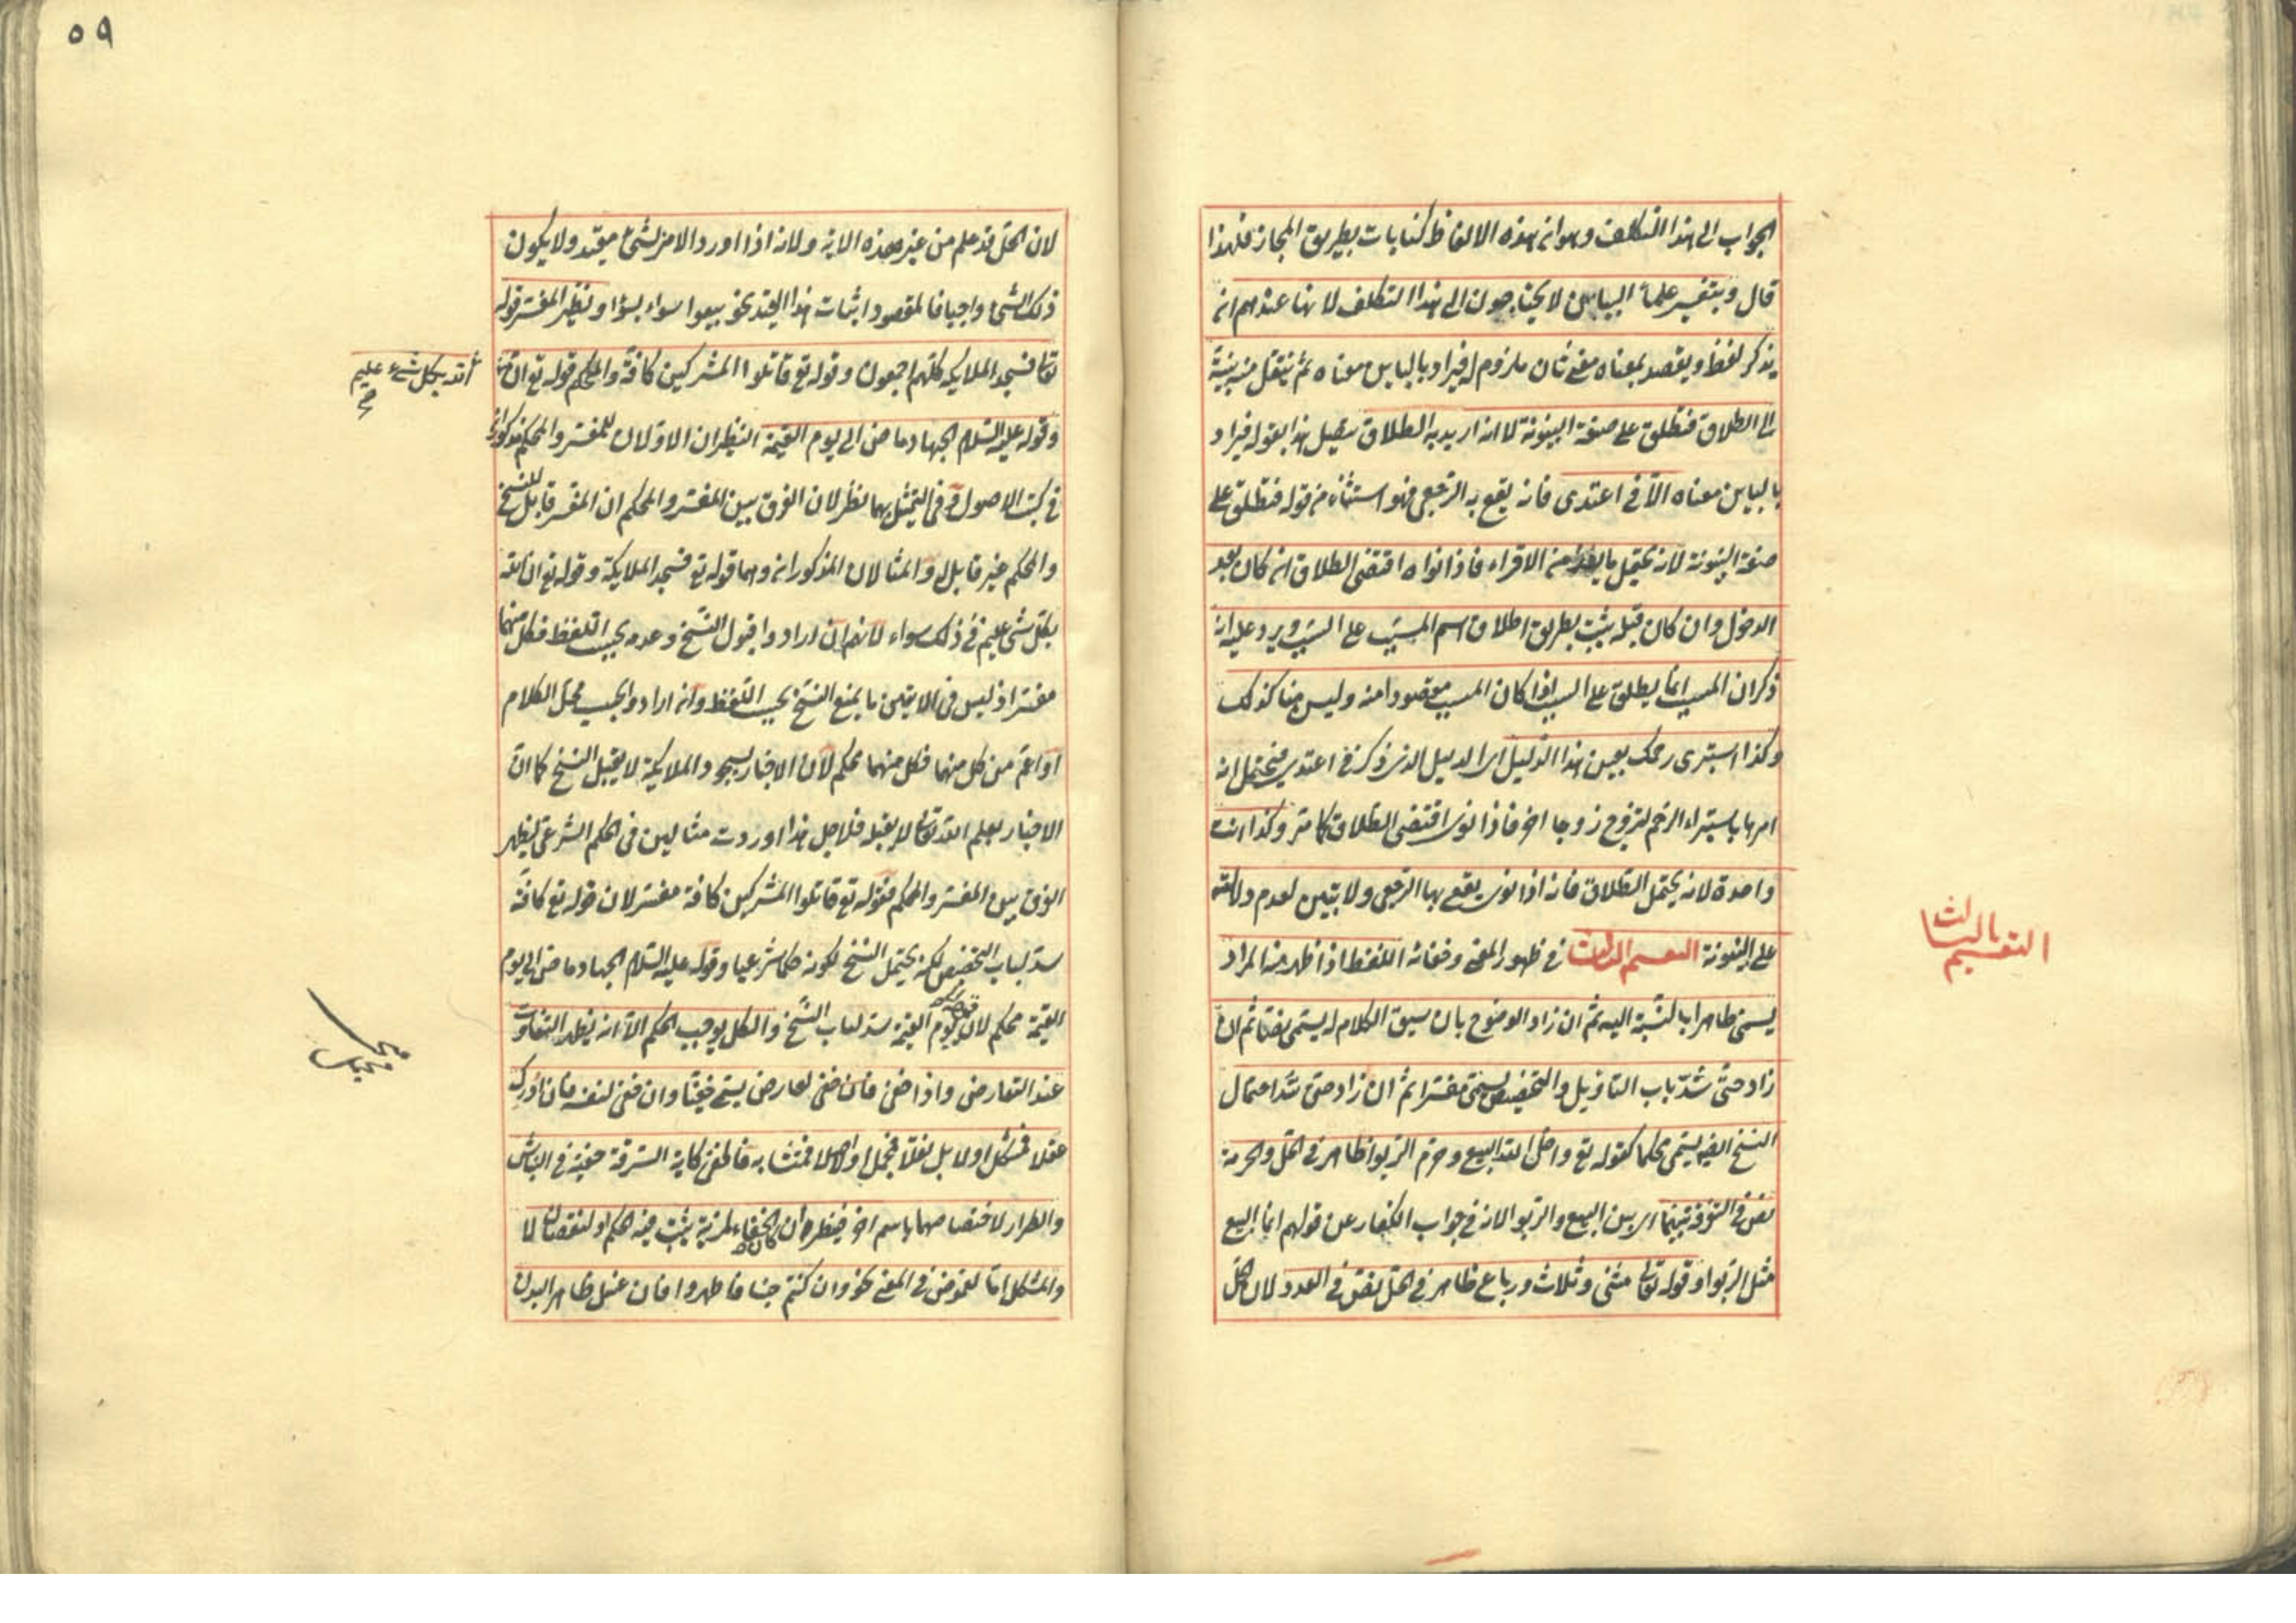 الجواب الى هذا التكلف وهو ان هذه الالفاظ كنايات بطريق المجاز فلهذا
قال وبتفسير علماء البيان لا يحتاجون الى هذا التكلف لانها عندهم ان
يذكر لفظ ويقصد بمعناه معنى ثان ملزوم له فيراد بالباين معناه ثم ينتقل منه بنية
الى الطلاق فتطلق على صفة البينونة لا انه اريد به الطلاق يتصل هذا بقوله فيراد
بالباين معناه الا فى اعتدى فانه يقع به الرجعى فهو استثناء من قوله فتطلق على
صفة البينونة لانه يحتمل ما يعد من الاقراء فاذا نواه اقتضى الطلاق ان كان بعد
الدخول وان كان قبله يثبت بطريق اطلاق اسم المسبب على السبب ويرد عليه ان
ذكر ان المسبب انما يطلق على السبب اذا كان المسبب مقصودا منه وليس هنا كذلك
وكذا استبرى رحمك بعين هذا الدليل اى الدليل الذى ذكر فى اعتدى فيحتمل انه
امرها باستبراء الرحم لتزوج زوجا اخر فاذا نوى اقتضى الطلاق كما مر وكذا انت
واحدة لانه يحتمل الطلاق فانه اذا نوى يقع بها الرجعى ولا تبين لعدم دلالته
على البينونة التقسيم الثالث فى ظهور المعنى وخفائه اللفظ اذا ظهر منه المراد
التقسيم الثالث
يسمى ظاهرا بالنسبة اليه ثم ان زاد الوضوح بان سيق الكلام له يسمى نصا ثم ان
زاد حتى سد باب التاويل والتخصيص يسمى مفسرا ثم ان زاد حتى سد احتمال
النسخ ايضا يسمى محكما كقوله تع واحل الله البيع وحرم الربوا ظاهر فى الحل والحرمة
نص فى التفرقة بينهما اى بين البيع والربوا لانه فى جواب الكفار عن قولهم انما البيع
مثل الربوا وقوله تعالى مثنى وثلاث ورباع ظاهر فى الحل نص فى العدد لان الحل
٥٩
لان الحل قد علم من غير هذه الاية ولانه اذا اورد الامر بشئ مقيد ولا يكون
ذلك الشئ واجبا فالمقصود اثبات هذا القيد نحو بيعوا سواء بسواء ونظير المفسر قوله
تعالى فسجد الملايكة كلهم اجمعون وقوله تع قاتلوا المشركين كافة والمحكم قوله تع ان
الله بكل شئ عليم
صح
وقوله عليه السلام الجهاد ماض الى يوم القيمة النظيران الاولان للمفسر والمحكم مذكوران
فى كتب الاصول وفى التمثيل بهما نظر لان الفرق بين المفسر والمحكم ان المفسر قابل للنسخ
والمحكم غير قابل له والمثالان المذكوران وهما قوله تع فسجد الملايكة وقوله تع ان الله
بكل شئ عليم فى ذلك سواء لانهم ان ارادوا قبول النسخ وعدمه بحسب اللفظ فكل منهما
مفسر اذ ليس فى الايتين ما يمنع النسخ بحسب اللفظ وان ارادوا بحسب محل الكلام
او اعم من كل منهما فكل منهما محكم لان الاخبار بسجود الملايكة لا يقبل النسخ كما ان
الاخبار بعلم الله تعالى لا يقبله فلاجل هذا اوردت مثالين فى الحكم الشرعى ليظهر
الفرق بين المفسر والمحكم فقوله تع قاتلوا المشركين كافة مفسر لان قوله تع كافة
سد لباب التخصيص لكنه يحتمل النسخ لكونه حكما شرعيا وقوله عليه السلام الجهاد ماض الى يوم
القيمة محكم لان قوله يوم القيمة سد لباب النسخ والكل يوجب الحكم الا انه يظهر التفاوت
عند التعارض واذا خفى فان خفى لعارض يسمى خفيا وان خفى لنفسه فان ادرك
عقلا فمشكل او لا بل نقلا فمجمل او لا اصلا فمتشابه فالخفى كاية السرقة خفية فى النباش
والطرار لاختصاصهما باسم اخر فينظر ان كان الخفاء لمزية يثبت فيه الحكم او لنقصان لا
والمشكل اما لغموض فى المعنى نحو وان كنتم جنبا فاطهروا فان غسل ظاهر البدن